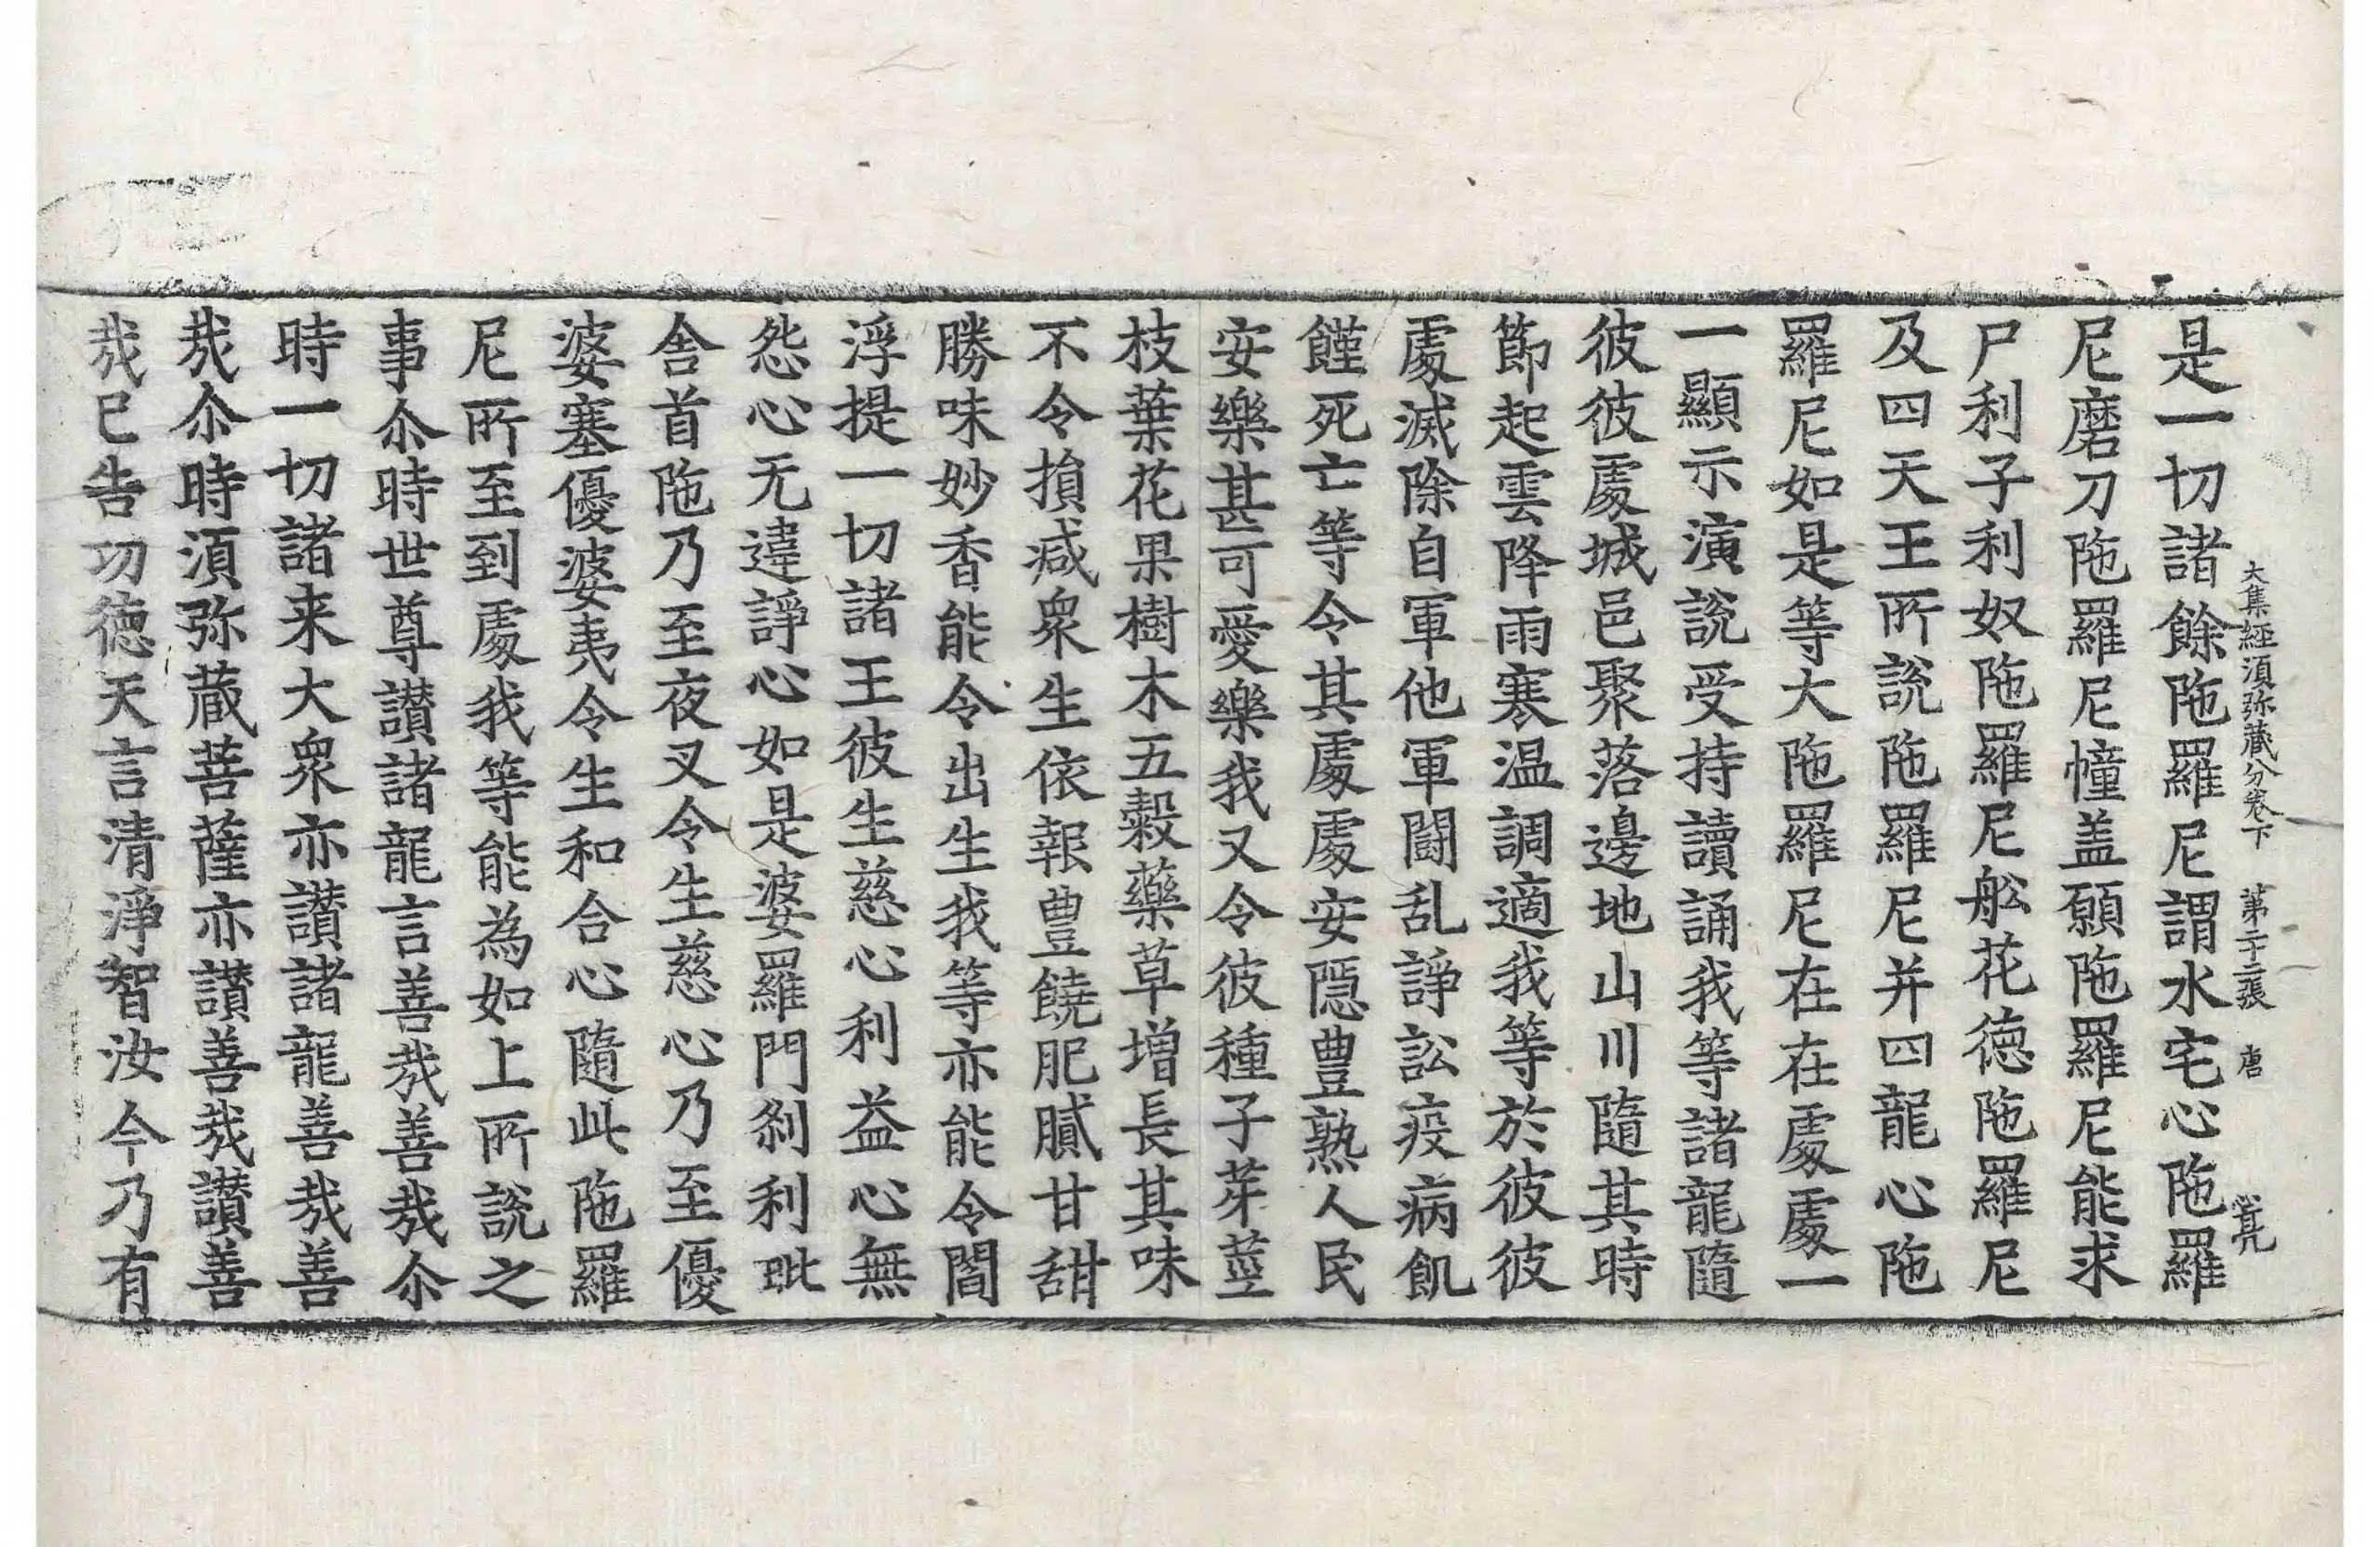 大集經須弥藏分卷下　第二十二張　唐
是一切諸餘陁羅尼謂水宅心陁羅
尼磨刀陁羅尼幢盖願陁羅尼能求
尸利子利奴陁羅尼舩花徳陁羅尼
及四天王所說陁羅尼并四龍心陁
羅尼如是等大陁羅尼在在處處一
一顯示演說受持讀誦我等諸龍隨
彼彼處城邑聚落邊地山川隨其時
節起雲降雨寒温調適我等於彼彼
處滅除自軍他軍鬪乱諍訟疫病飢
饉死亡等令其處處安隱豊熟人民
安樂甚可愛樂我又令彼種子芽莖
枝葉花果樹木五穀藥草增長其味
不令損减衆生依報豊饒肥膩甘甜
勝味妙香能令出生我等亦能令閻
浮提一切諸王彼生慈心利益心無
怨心无違諍心如是婆羅門刹利毗
舎首陁乃至夜叉令生慈心乃至優
婆塞優婆夷令生和合心隨此陁羅
尼所至到處我等能為如上所說之
事尒時世尊讃諸龍言善哉善哉尒
時一切諸来大衆亦讃諸龍善哉善
哉尒時須弥藏菩薩亦讃善哉讃善
哉已告㓛徳天言清淨智汝今乃有